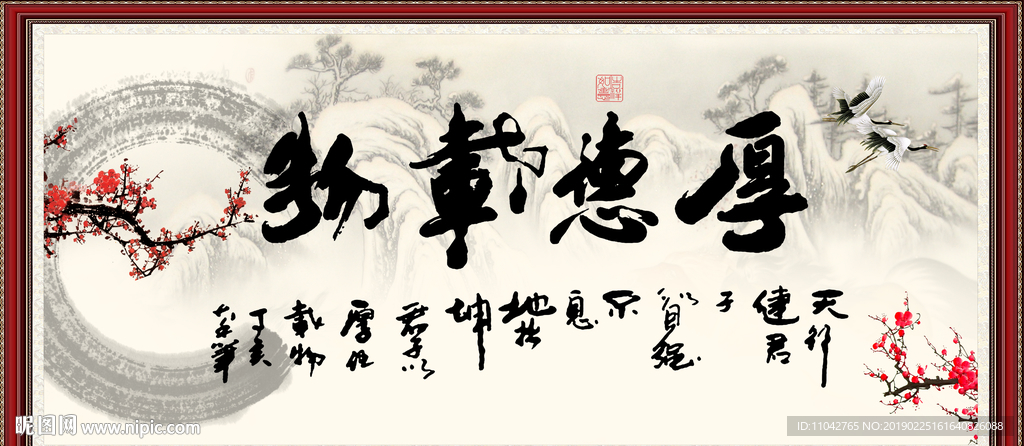 吉祥如意
厚德載物
天行
健君
子
以自强
不
息
地势
坤
君子以
厚德
載物
丁亥
昵图网 www.nipic.com
ID:11042765 NO:20190225161640826088